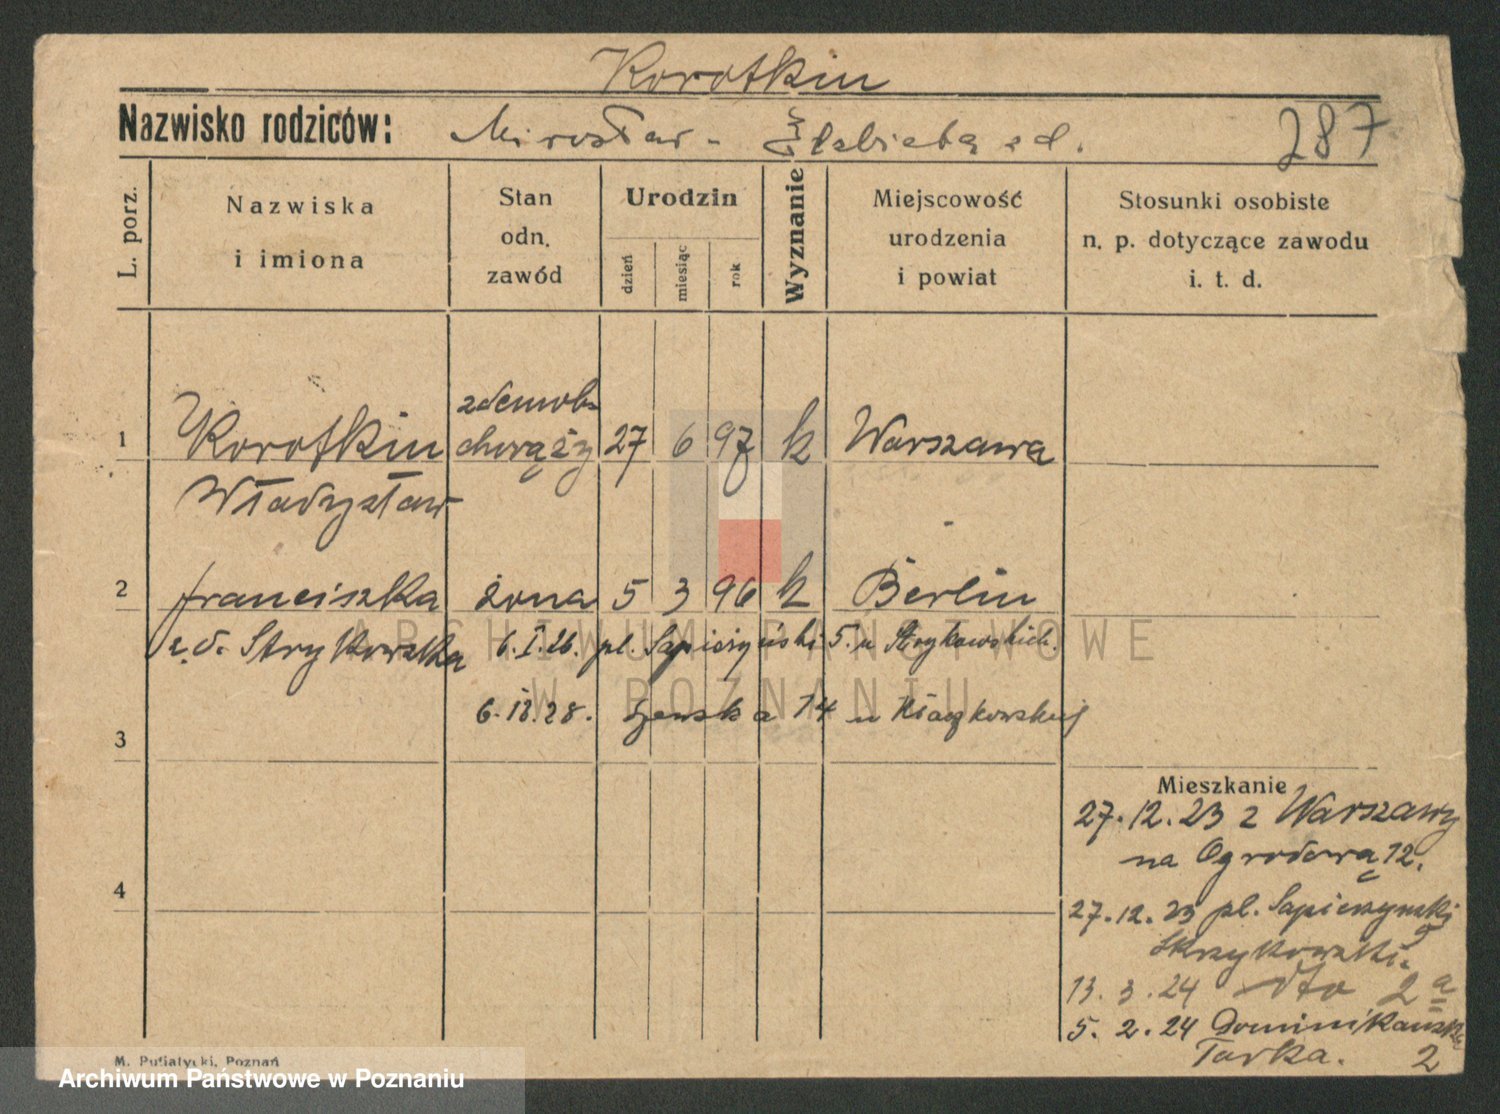 Korotkin
Nazwisko rodziców: Mirosław - Elżbieta z d. 287
L. porz.
Nazwiska
i imiona
Stan
odn.
zawód
Urodzin
dzień
miesiąc
rok
Wyznanie
Miejscowość
urodzenia
i powiat
Stosunki osobiste
n. p. dotyczące zawodu
i. t. d.
zdemob.
1 Korotkin chorąży 27 6 97 k Warszawa
Władysław
2 franciszka żona 5 3 96 k Berlin
z.d. Strykowska 6.I.26. pl. Sapieżyński 5. u Strykowskich.
6.12.28. 14 u
3
Mieszkanie
27.12.23 z Warszawy
na Ogrodową 12.
4
27.12.23 pl. Sapieżyński
13.3.24 dto 2a
5.2.24 Dominikańska
Tarka. 2
M. Putiatycki, Poznań
ARCHIWUM PAŃSTWOWE
W POZNANIU
Archiwum Państwowe w Poznaniu